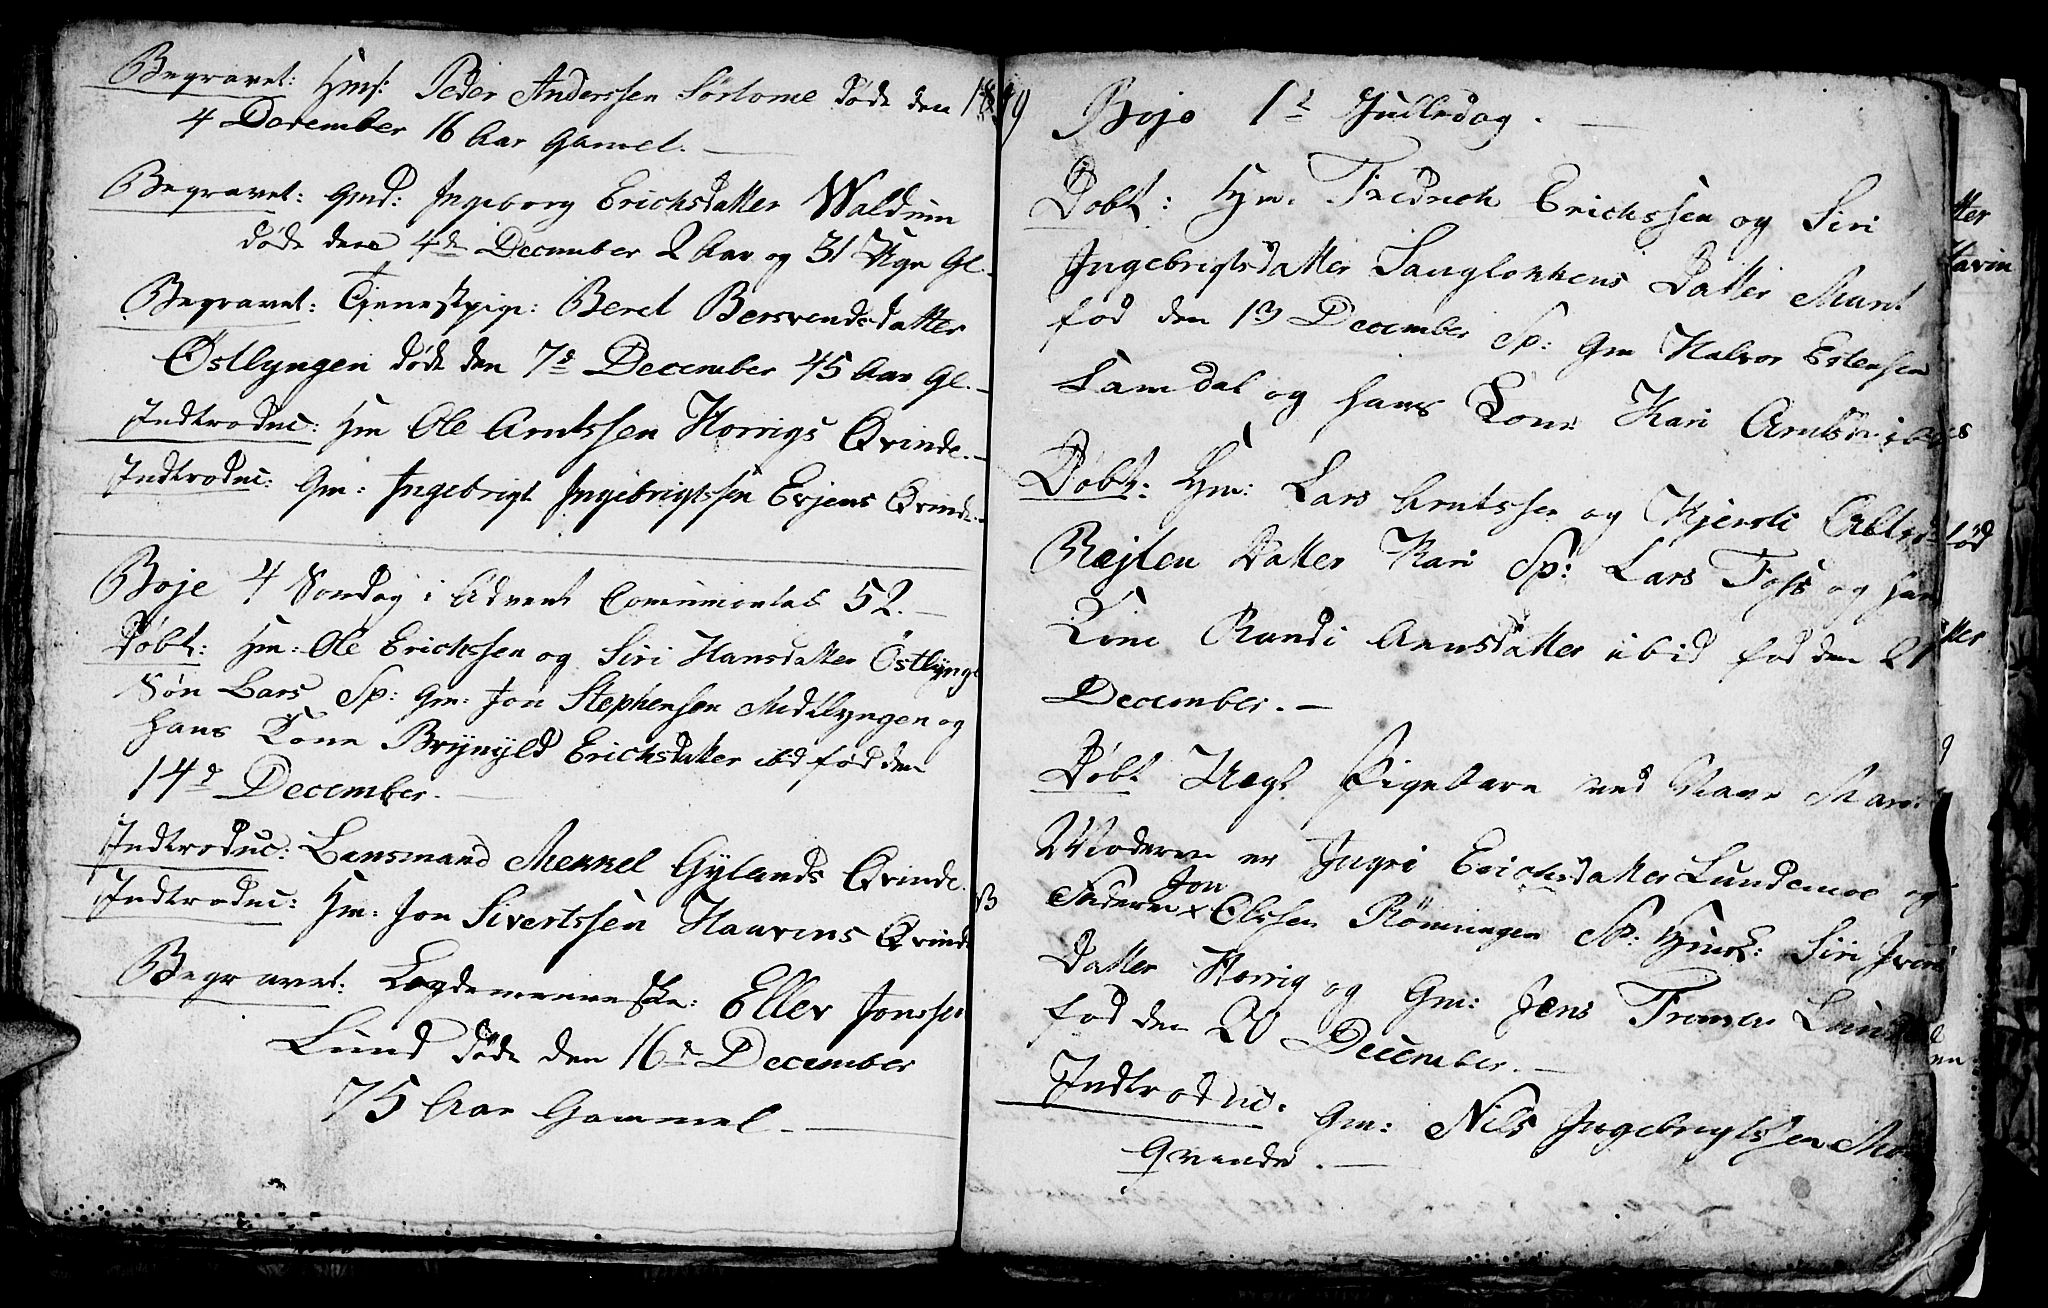 Begravet: Hms: Peder Anderssen Sørlome døde den
4 December 16 Aar Gamel.
Begravet: Gmd: Ingeborg Erichsdatter Waldum
døde den 4de December 2 Aar og 31 Uge Gl.
Begravet: Tjenestpige: Beret Bersvendsdatter
Østlyngen døde den 7de December 45 Aar Gl.
Indtroduc: Hm Ole Arntssen Horrigs Qvinde.
Indtroduc: Gm: Ingebrigt Ingebrigtssen Evjens Qvinde
Boje 4 Søndag i Advent Comunicantes 52.
Døbt: Hm: Ole Erichssen og Siri Hansdatter Østlyng
Søn Lars Sp: Gm: Jon Stephensen Midtlyngen og
hans Kone Brynyld Erichsdatter ibd fød den
14de December.
Indtroduc: Lansmand Mekkel Gylands Qvinde.
Indtroduc: Hm: Jon Sivertssen Haavens Qvinde
Begravet: Legdemenneske: Eller Jonsse
Lund døde den 16de December
75 Aar Gammel.
Boje 1ste Juledag.
Døbt: Hm. Fredrich Erichssen og Siri
Ingebrigtsdatter Sanglokkens Datter Marit
fød den 13 December Sp: Gm Halvor Estensen
Samdal og hans Kone Kari Arntsd: ibds
Døbt: Hm: Lars Arntssen og Kjersti fød
Røjten Datter Kari Sp: Lars Foss og hans
Kone Randi Arnsdatter ibid fød den 21
December.
Døbt Uægt Pigebarn ved Navn Marit
Moderen er Ingri Erichsdatter Lundemoe og
Jon
Faderen x Olssen Rønningen Sp: Hmsk: Siri Ivers
datter Horrig og Gm: Jens Lund
fød den 20 December.
Indtroduc: Gm: Nils Ingebrigtssen Moe
Qvinde.